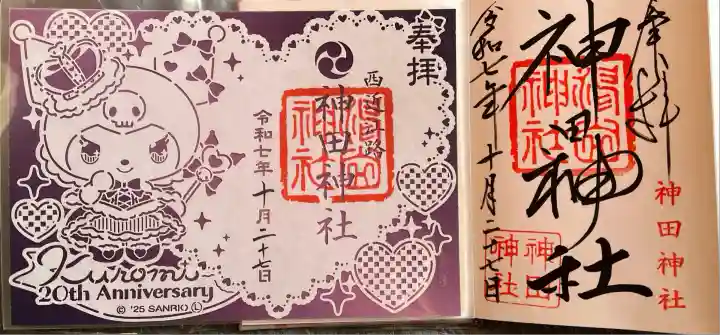 奉拝
西近江路
神田神社
令和七年十月二十七日
Kuromi
20th Anniversary
© '25 SANRIO Ⓛ
奉拝
神田神社
神田神社
令和七年十月二十七日
神田
神社